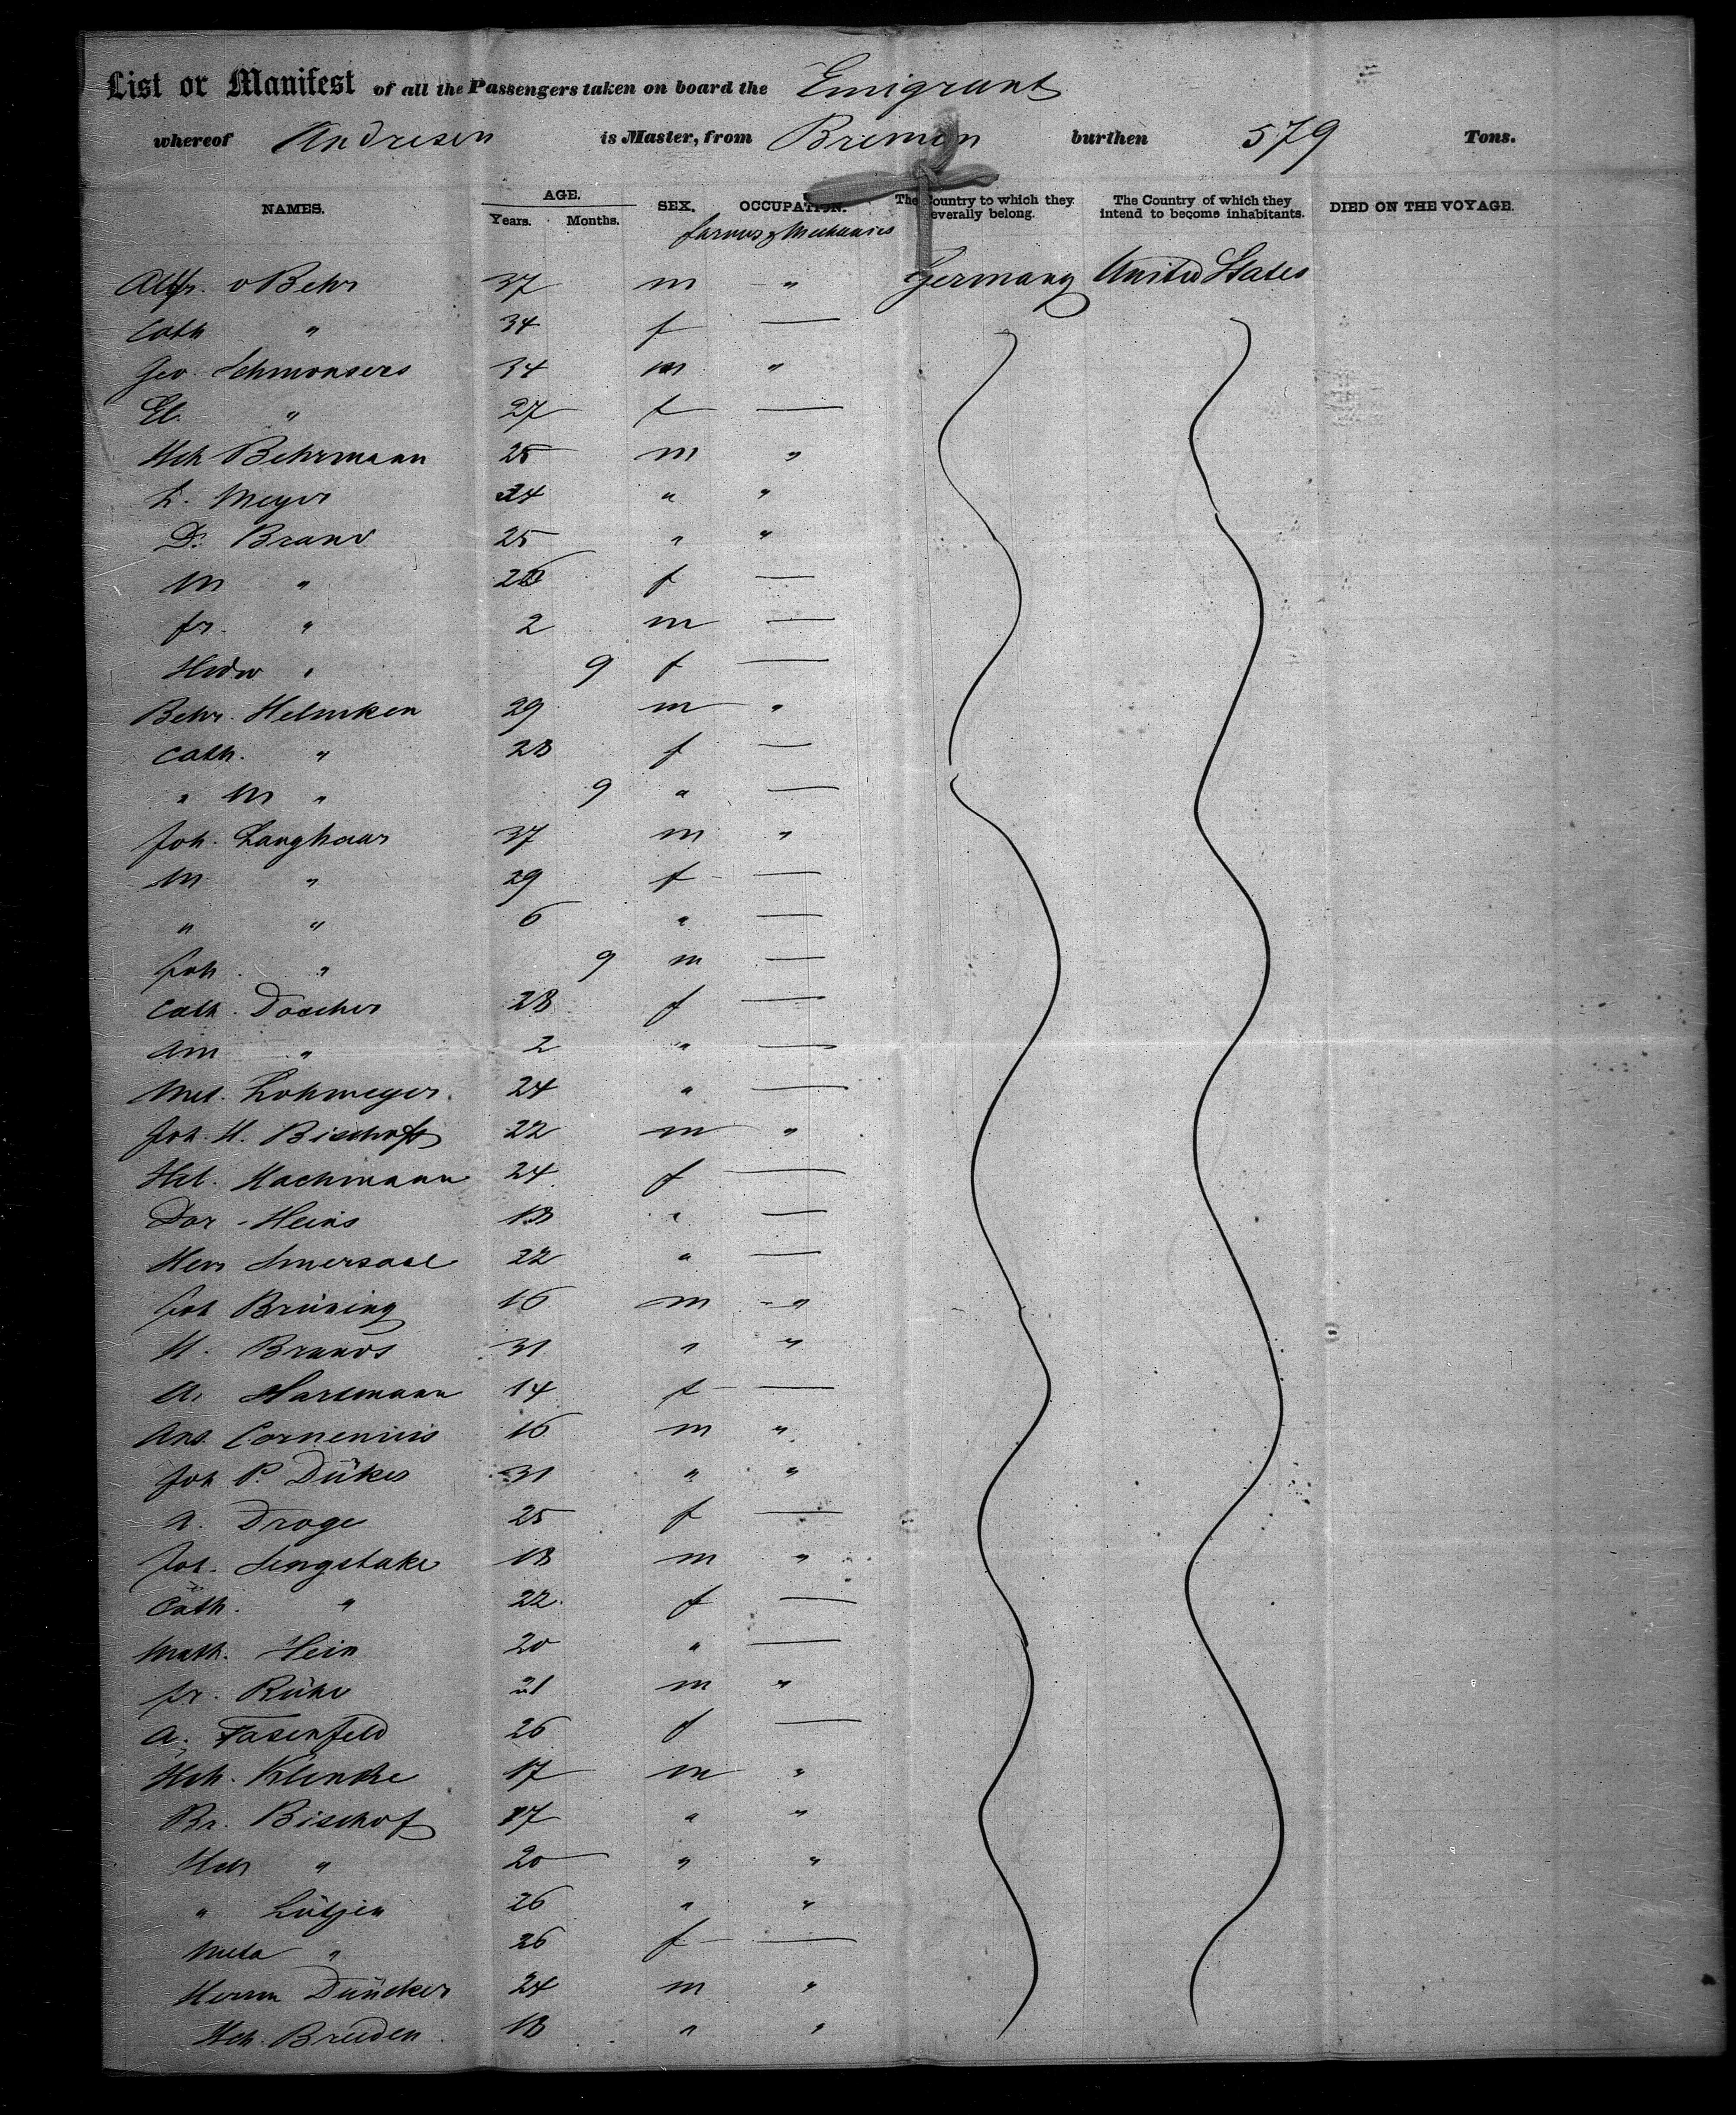 List or Manifest of all the Passengers taken on board the Emigrant
whereof Andresen is Master, from Bremen burthen 579 Tons.
NAMES. AGE. Years. Months. SEX. OCCUPATION. The Country to which they severally belong. The Country of which they intend to become inhabitants. DIED ON THE VOYAGE.
farmers & Mechanics
v Behr 37 m " Germany United States
Cath " 34 f —
Geo. Schmonsees 34 m "
El. " 27 f —
Hch Behrmann 25 m "
L. Meyer 24 " "
D. Brand 25 " "
M " f —
fr. " 2 m —
Hedw " 9 f —
Behr. Helmken 29 m "
Cath. " 28 f —
" M " 9 " —
Joh. Langhaar 37 m "
M " 29 f —
" " 6 " —
Joh. " 9 m —
Cath. Doscher 28 f —
" 2 " —
Met. Lohmeyer 24 " —
Joh. H. Bischoff 22 m "
Hel. Hachmann 24 f —
Dor. Heins 18 " —
22 " —
Joh Brüning 16 m "
H. Brands 31 " "
A. Hartmann 14 f —
16 m "
Joh P. Düker 31 " "
A. Droge 25 f —
Joh. Sengstake 18 m "
Cath. " 22 f —
Math. Hein 20 " —
fr. 21 m "
A. Fasenfeld 26 f —
Hch. Klencke 17 m "
Br. Bischof 17 " "
Hch " 20 " "
" Lütjen 26 " "
Meta " 26 f —
Herrm Düncker 24 m "
Hch. Breden 18 " "